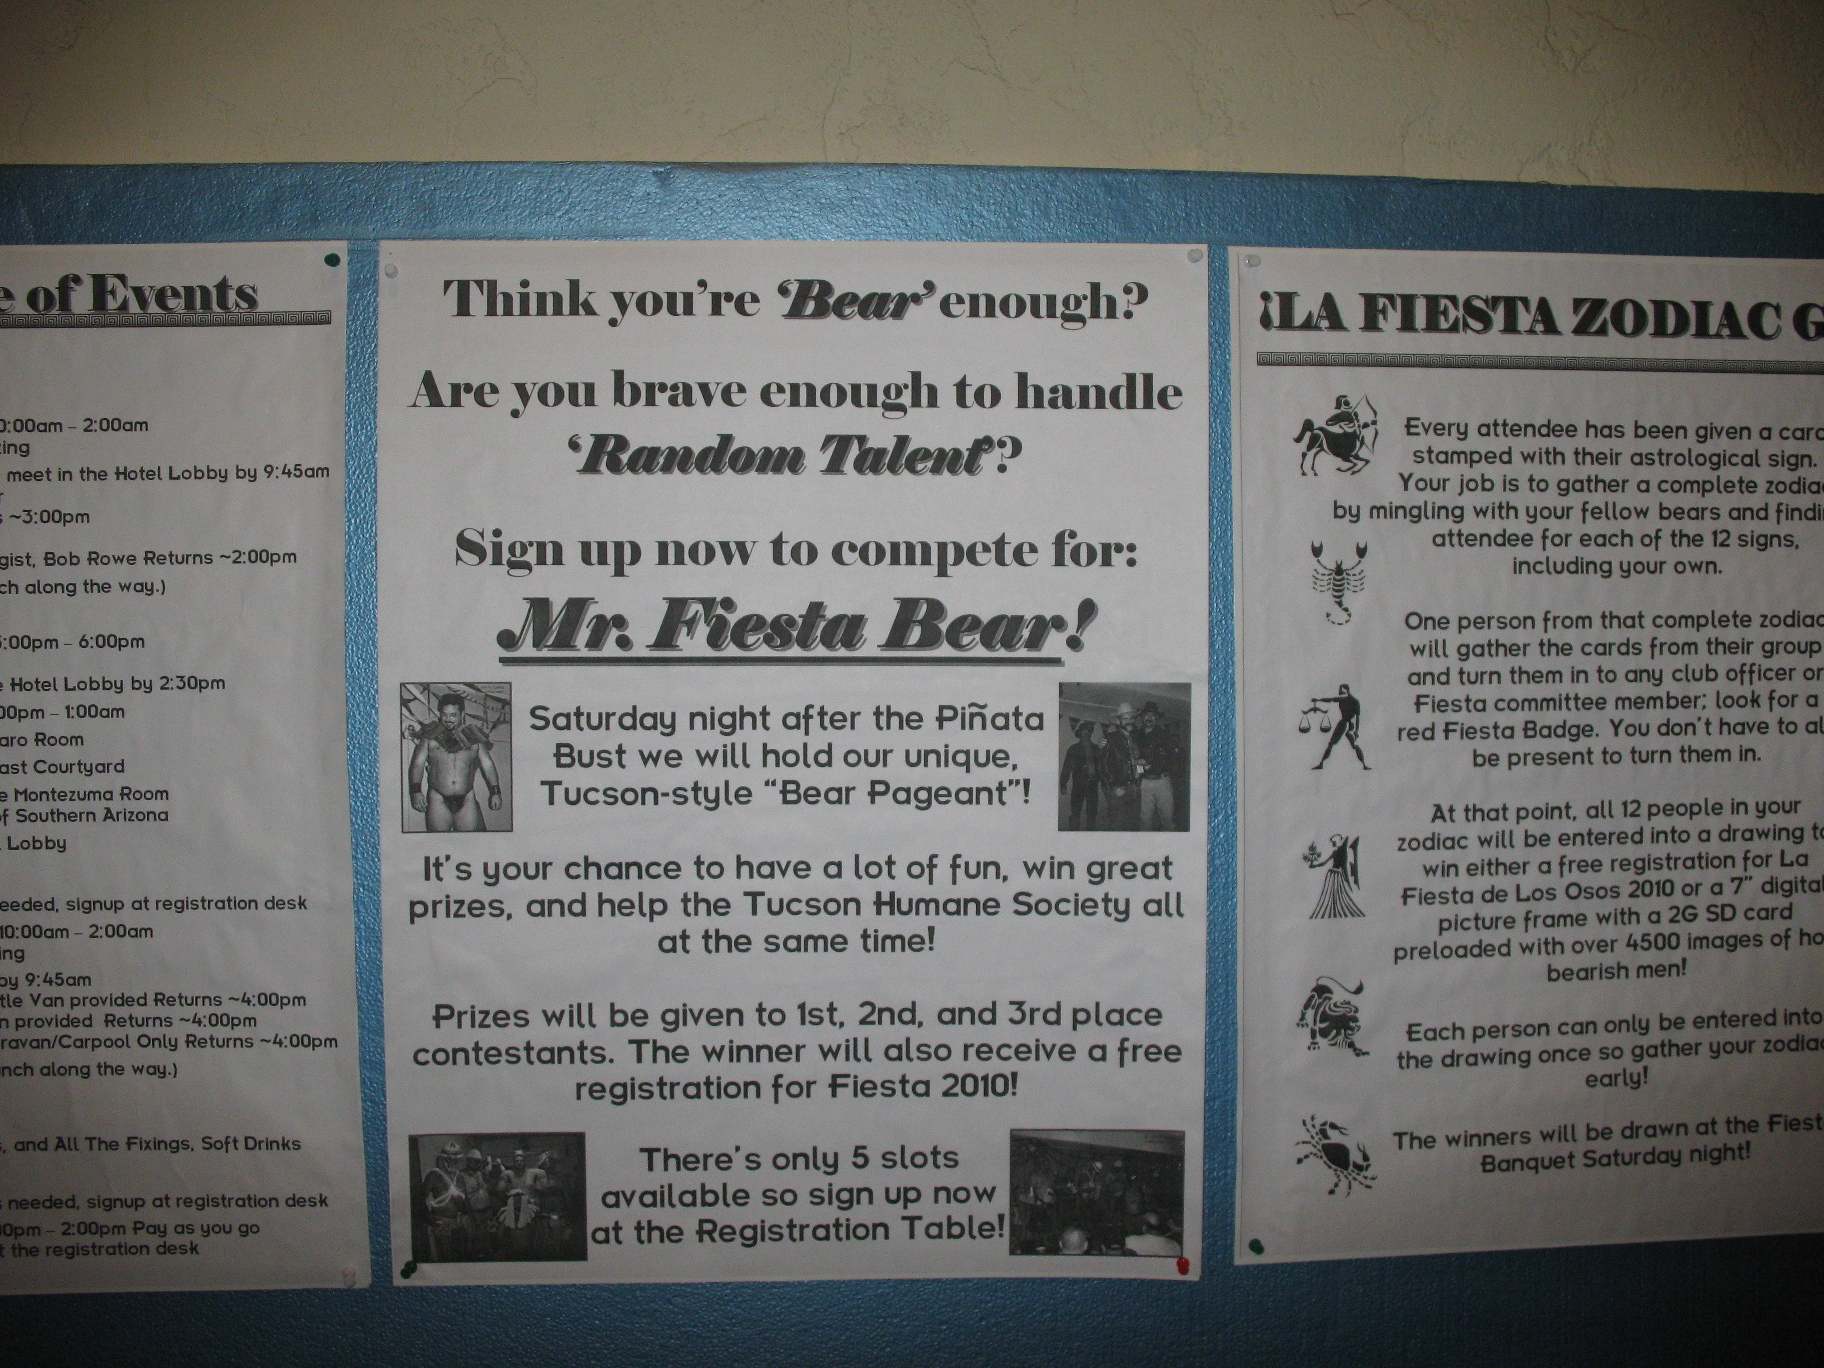 e of Events
0:00am – 2:00am
meet in the Hotel Lobby by 9:45am
~3:00pm
Bob Rowe Returns ~2:00pm
along the way.)
:00pm – 6:00pm
Hotel Lobby by 2:30pm
00pm – 1:00am
Room
Courtyard
Montezuma Room
of Southern Arizona
Lobby
signup at registration desk
10:00am – 2:00am
by 9:45am
Van provided Returns ~4:00pm
provided Returns ~4:00pm
Only Returns ~4:00pm
along the way.)
and All The Fixings, Soft Drinks
needed, signup at registration desk
0pm – 2:00pm Pay as you go
the registration desk
Think you're 'Bear' enough?
Are you brave enough to handle
'Random Talent'?
Sign up now to compete for:
Mr. Fiesta Bear!
Saturday night after the Piñata
Bust we will hold our unique,
Tucson-style “Bear Pageant”!
It's your chance to have a lot of fun, win great
prizes, and help the Tucson Humane Society all
at the same time!
Prizes will be given to 1st, 2nd, and 3rd place
contestants. The winner will also receive a free
registration for Fiesta 2010!
There's only 5 slots
available so sign up now
at the Registration Table!
¡LA FIESTA ZODIAC G
Every attendee has been given a card
stamped with their astrological sign.
Your job is to gather a complete zodiac
by mingling with your fellow bears and findi
attendee for each of the 12 signs,
including your own.
One person from that complete zodiac
will gather the cards from their group
and turn them in to any club officer or
Fiesta committee member; look for a
red Fiesta Badge. You don't have to al
be present to turn them in.
At that point, all 12 people in your
zodiac will be entered into a drawing to
win either a free registration for La
Fiesta de Los Osos 2010 or a 7” digital
picture frame with a 2G SD card
preloaded with over 4500 images of ho
bearish men!
Each person can only be entered into
the drawing once so gather your zodiac
early!
The winners will be drawn at the Fiest
Banquet Saturday night!